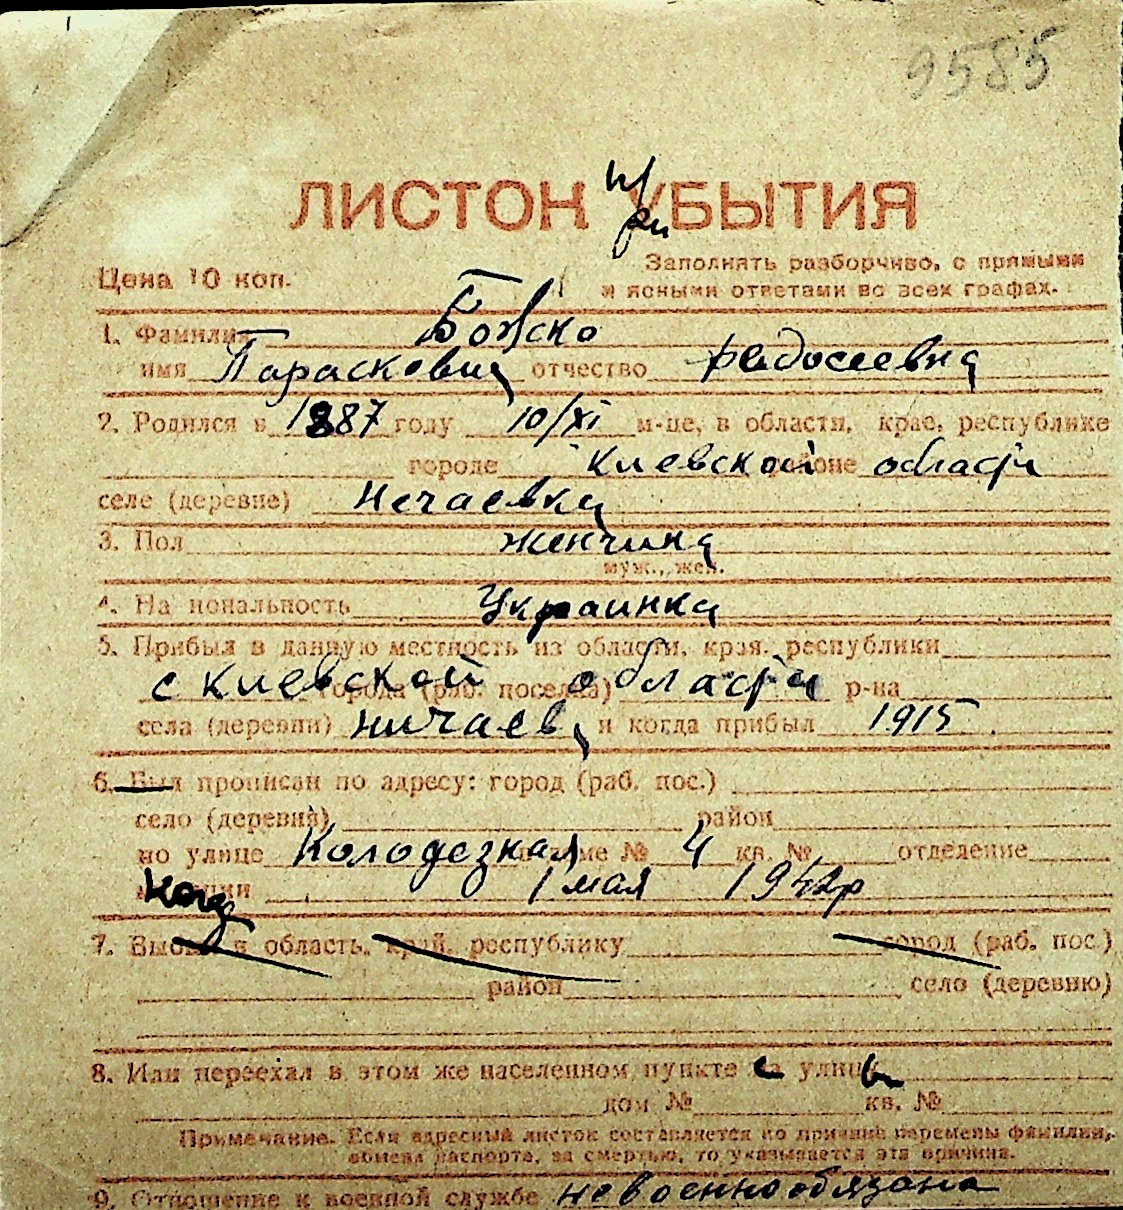 9585
ЛИСТОК УБЫТИЯ
при
Цена 10 коп.
Заполнять разборчиво, с прямыми
и ясными ответами во всех графах.
1. Фамилия Божко
имя Парасковия отчество Федосеевна
2. Родился в 1887 году 10/XI м-це, в области, крае, республике
городе Киевской районе области
селе (деревне) Нечаевка
3. Пол женчина
муж., жен.
4. Национальность Украинка
5. Прибыл в данную местность из области, края, республики
с Киевской города (раб. поселка) области р-на
села (деревни) Ничаев и когда прибыл 1915
6. Был прописан по адресу: город (раб. пос.)
село (деревня) район
по улице Колодезная № 4 кв. № отделение
когда 1 мая 1942р
7. Выбыл в область, край, республику город (раб. пос.)
район село (деревню)
8. Или переехал в этом же населенном пункте с улицы
дом № кв. №
Примечание. Если адресный листок составляется по причине перемены фамилии,
обмена паспорта, за смертью, то указывается эта причина.
9. Отношение к военной службе невоеннообязана